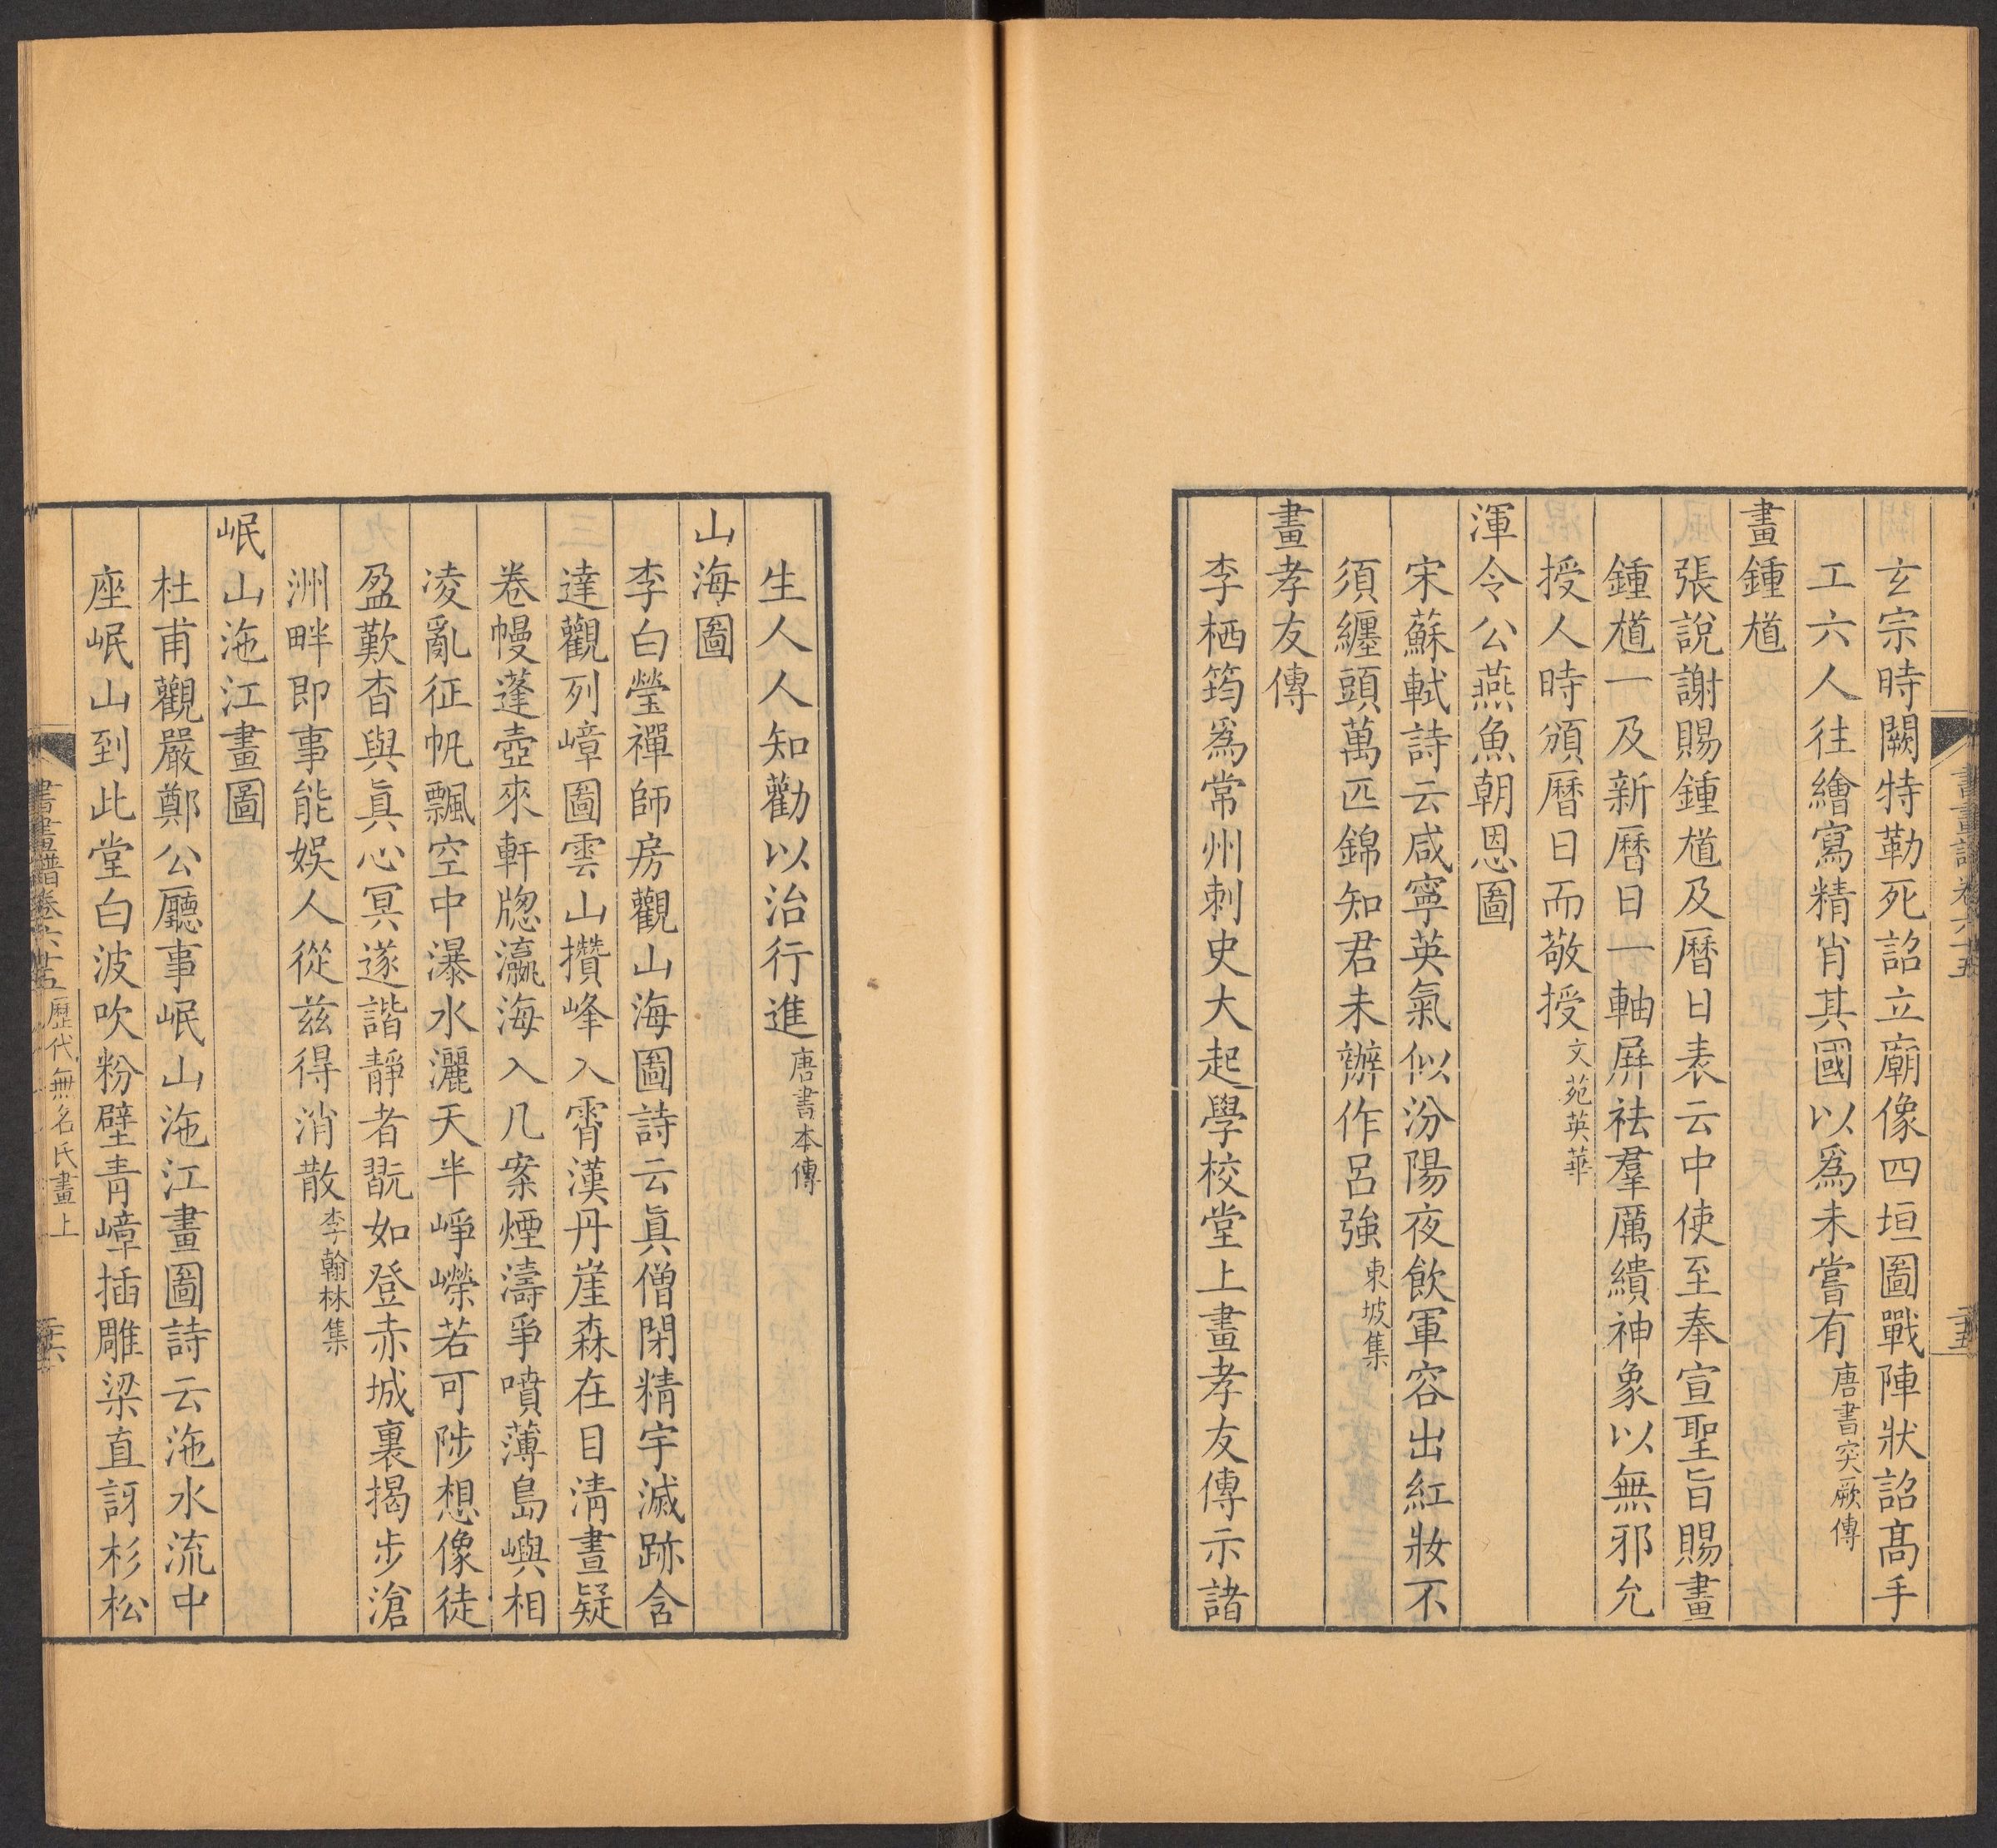 玄宗時闕特勒死詔立廟像四垣圖戰陣狀詔髙手
工六人往繪寫精肖其國以爲未嘗有唐書突厥傳
畫鍾馗
張說謝賜鍾馗及曆日表云中使至奉宣聖旨賜畫
鍾馗一及新曆日一軸屛袪羣厲繢神象以無邪允
授人時頒曆日而敬授文苑英華
渾令公燕魚朝恩圖
宋蘇軾詩云咸寧英氣似汾陽夜飮軍容出紅妝不
須纏頭萬匹錦知君未辦作呂強東坡集
畫孝友傳
李栖筠爲常州刺史大起學校堂上畫孝友傳示諸
生人人知勸以治行進唐書本傳
山海圖
李白瑩禪師房觀山海圖詩云眞僧閉精宇滅跡含
達觀列嶂圖雲山攢峰入霄漢丹崖森在目淸晝疑
卷幔蓬壺來軒牕瀛海入几案煙濤爭噴薄島嶼相
凌亂征帆飄空中瀑水灑天半崢嶸若可陟想像徒
盈歎杳與眞心冥遂諧靜者翫如登赤城裏揭步滄
洲畔即事能娛人從兹得消散李翰林集
岷山沲江畫圖
杜甫觀嚴鄭公廳事岷山沲江畫圖詩云沲水流中
座岷山到此堂白波吹粉壁靑嶂插雕梁直訝杉松
書畫譜卷八十五 歷代無名氏畫上